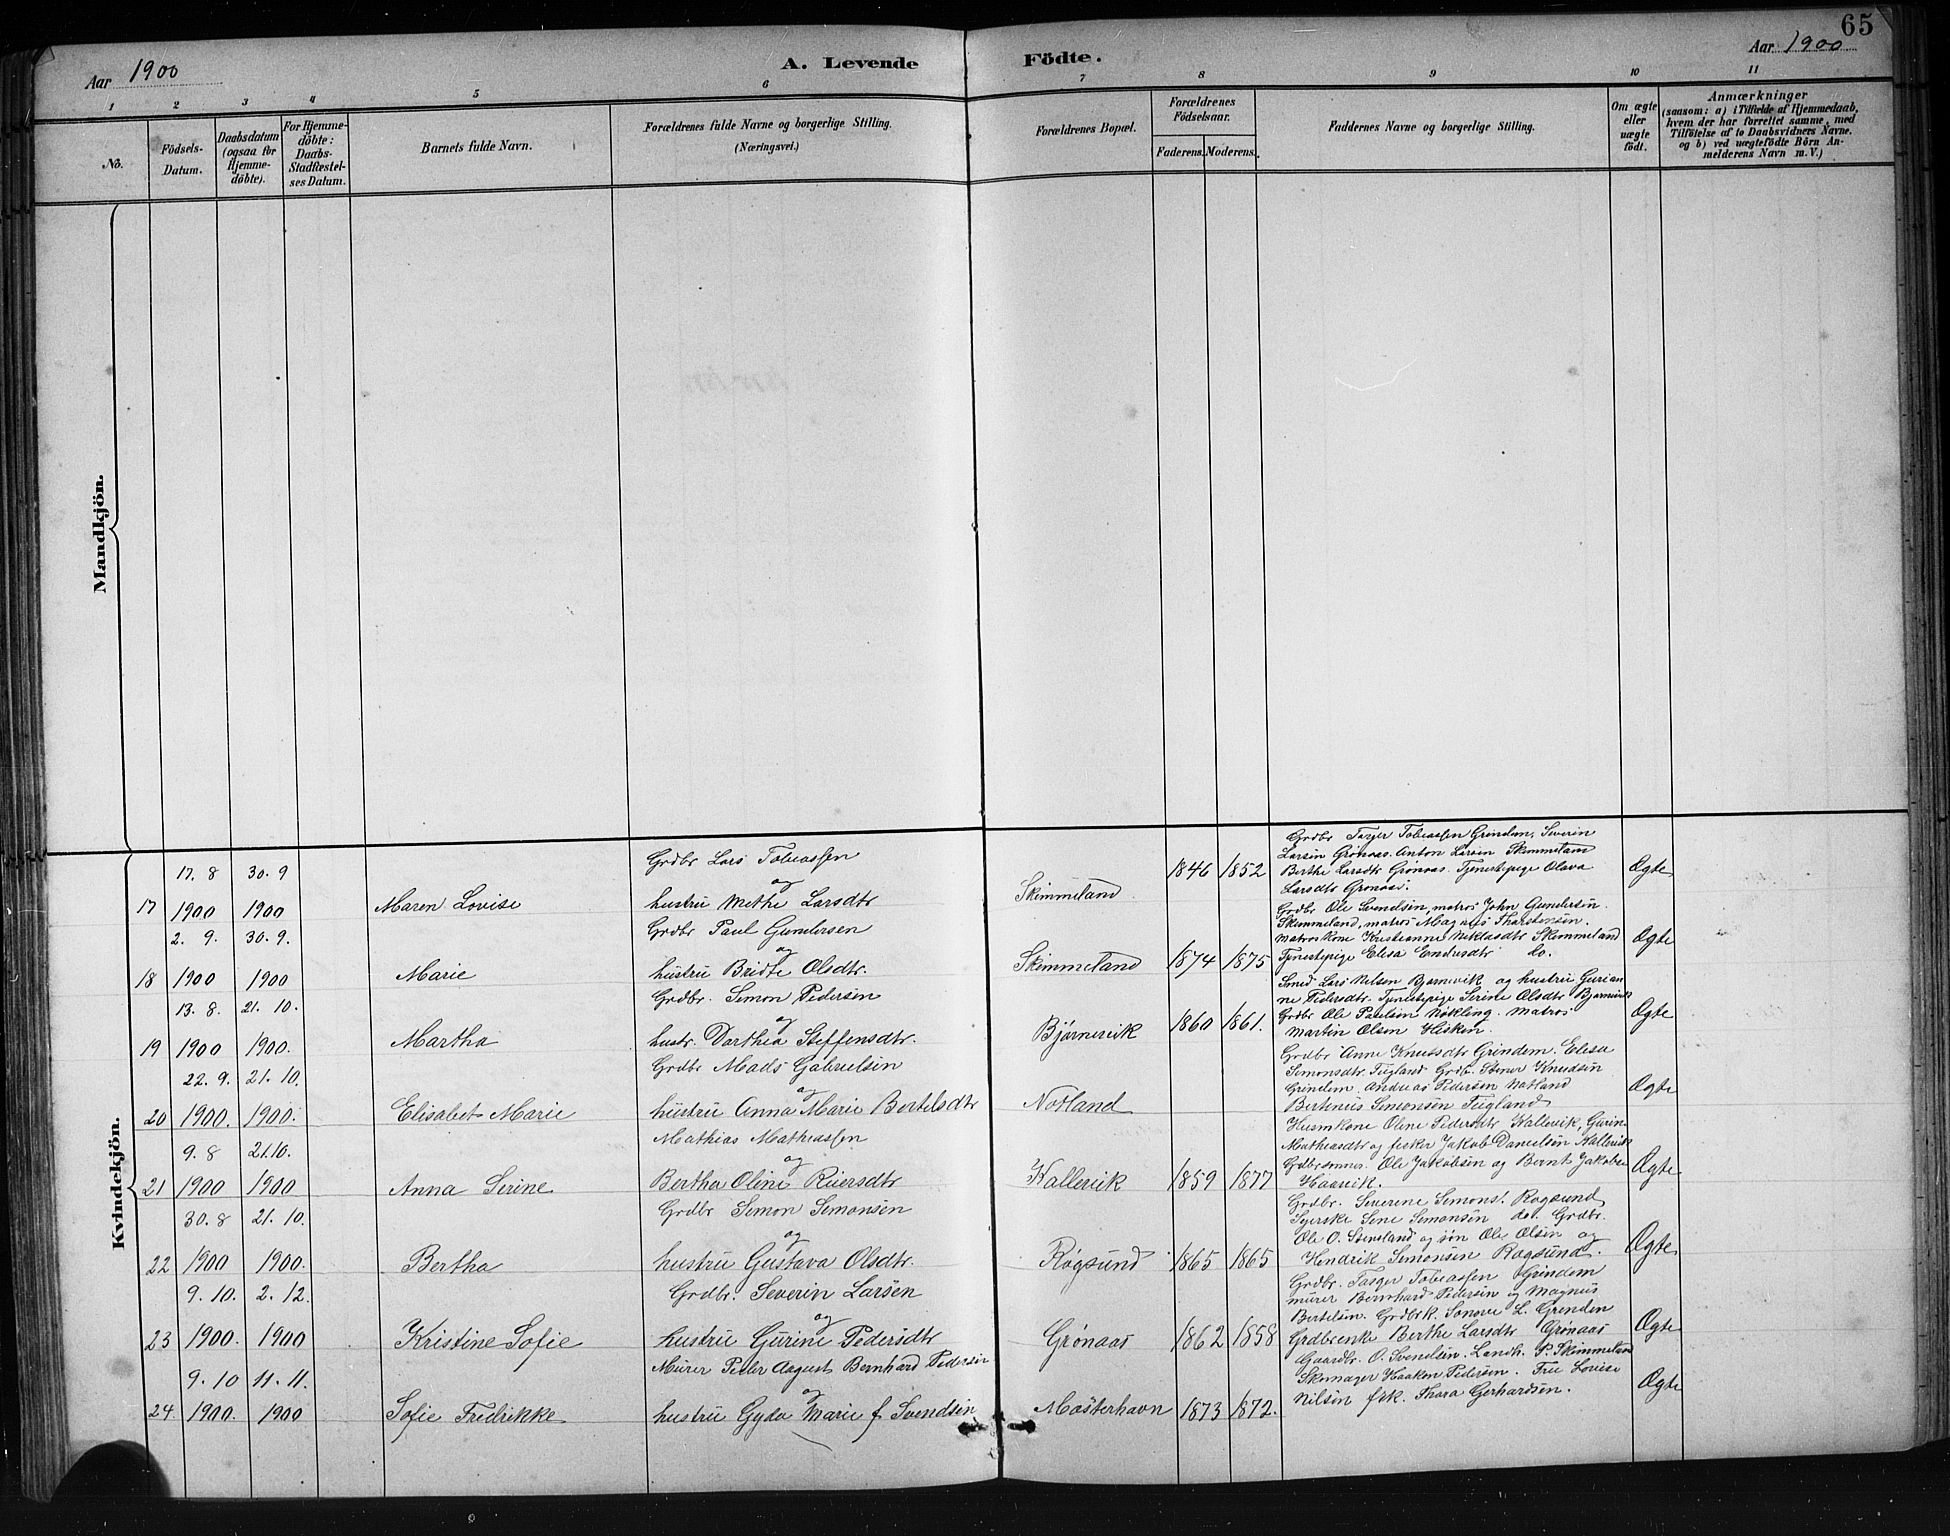 65
Aar 1900
A. Levende Födte.
Aar 1900
1 2 3 4 5 6 7 8 9 10 11
No.
Födsels-Datum.
Daabsdatum (ogsaa for Hjemme-döbte).
For Hjemme-döbte: Daabs-Stadfæstel-ses Datum.
Barnets fulde Navn.
Forældrenes fulde Navne og borgerlige Stilling.
(Næringsvei.)
Forældrenes Bopæl.
Forældrenes Födselsaar.
Faderens. Moderens.
Faddernes Navne og borgerlige Stilling.
Om ægte eller uægte födt.
Anmærkninger
(saasom: a) i Tilfælde af Hjemmedaab,
hvem der har forrettet samme, med
Tilföielse af to Daabsvidners Navne.
og b) ved uægtefödte Börn An-
melderens Navn m. V.)
Mandkjön.
Kvindekjön.
17 17. 8 1900 30. 9 1900 Maren Lovise
Grdbr Lars Tobiassen
og
hustru Methe Larsdtr
Skimmeland 1846 1852
Grdbr Targer Tobiassen Grindem, Severin
Larsen Grönaas. Anton Larsen Skimmeland
Berthe Larsdtr Grönaas. Tjenestepige Olava
Larsdtr Grönaas.
Ægte
18 2. 9. 1900 30. 9. 1900 Marie
Grdbr Paul Gundersen
og
hustru Bridte Olsdtr.
Skimmeland 1874 1875
Grdbr Ole Svendsen, matros John Gundersen.
Skimmeland, matros Magnus Tharstensen.
Matros Kone Kristianne Niklasdtr Skimmeland
Tjenestepige Elisa Endresdtr do.
Ægte
19 13. 8. 1900 21. 10. 1900. Martha
Grdbr. Simon Pedersen
og
hustr. Dorthea Steffensdtr.
Bjørnevik 1860 1861.
Smed Lars Nilsen Bjørnevik og hustru Gurian
ne Pedersdtr. Tjenestepige Serine Olsdtr Bjørnevik
Grdbr Ole Paulsen Nökling. Matros
Martin Olsen Hisken.
Ægte
20 22. 9. 1900. 21. 10. 1900. Elisabet Marie
Grdbr Mads Gabrielsen
og
hustru Anna Marie Bertelsdtr
Notland
Grdbr Anne Knutsdtr Grindem. Elisa
Simonsdtr Fugland Grdbr. Stener Knudsen
Grindem. Andreas Pedersen Notland
Bertinus Simonsen Fugland
Ægte
21 9. 8 1900 21.10. 1900 Anna Serine
Mathias Mathiassen
og
Bertha Oline Riersdtr
Wallevik 1859 1877
Husmkone Oline Pedersdtr Wallevik, Gurin
Mathiasdtr og fisker Jakob Danielsen Wallevik
Grdbrsønner Ole Jakobsen og Bernt Jakobsen
Haavik.
Ægte
22 30. 8 1900 21. 10. 1900. Bertha
Grdbr Simon Simonsen
og
hustru Gustava Olsdtr.
Røgsund 1865 1865
Grdbr. Severine Simons. Røgsund
Syerske Sine Simonsen do. Grdbr.
Ole O. Stensland og søn Ole Olsen og
Hendrik Simonsen Røgsund.
Ægte
23 9. 10. 1900. 2. 12. 1900 Kristine Sofie
Grdbr. Severin Larsen
og
hustru Gurine Pedersdtr
Grönaas 1862 1858
Grdbr. Targer Tobiassen Grindem
murer Bernhard Pedersen og Magnus
Bertelsen. Grdbrk. Sonove L. Grindem
Grdbrenke Berthe Larsdtr Grönaas
Ægte
24 9. 10 1900. 11. 11. 1900 Sofie Fredrikke
Murer Peder August Bernhard Pedersen
og
hustru Gyda Marie f Svendsen
Mosterhavn 1873 1872.
Gaardbr. O. Svendsen. Landh. P. Skimmeland
Skomager Haaken Pedersen. Fru Lovise
Nilsen frk. Thara Gerhardsen.
Ægte